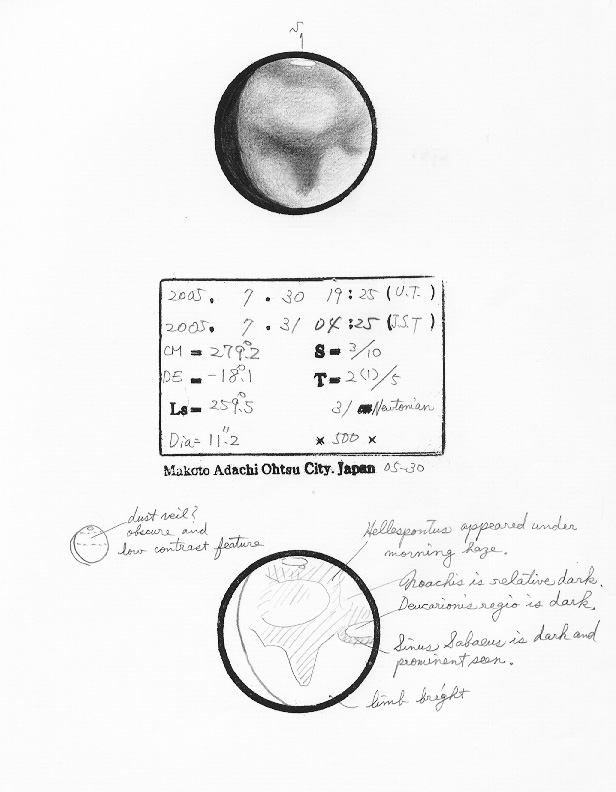 S
2005. 7. 30 19:25 (U.T.)
2005. 7. 31 04:25 (J.S.T)
CM = 279°.2 S = 3/10
DE = -18°.1 T = 2(1)/5
Ls = 259°.5 31 cm Newtonian
Dia = 11".2 × 500 ×
Makoto Adachi Ohtsu City. Japan 05-30
dust veil?
obscure and
low contrast feature
Hellespontus appeared under
morning haze.
Noachis is relative dark.
Deucarionis regio is dark.
Sinus Sabaeus is dark and
prominent seen.
limb bright